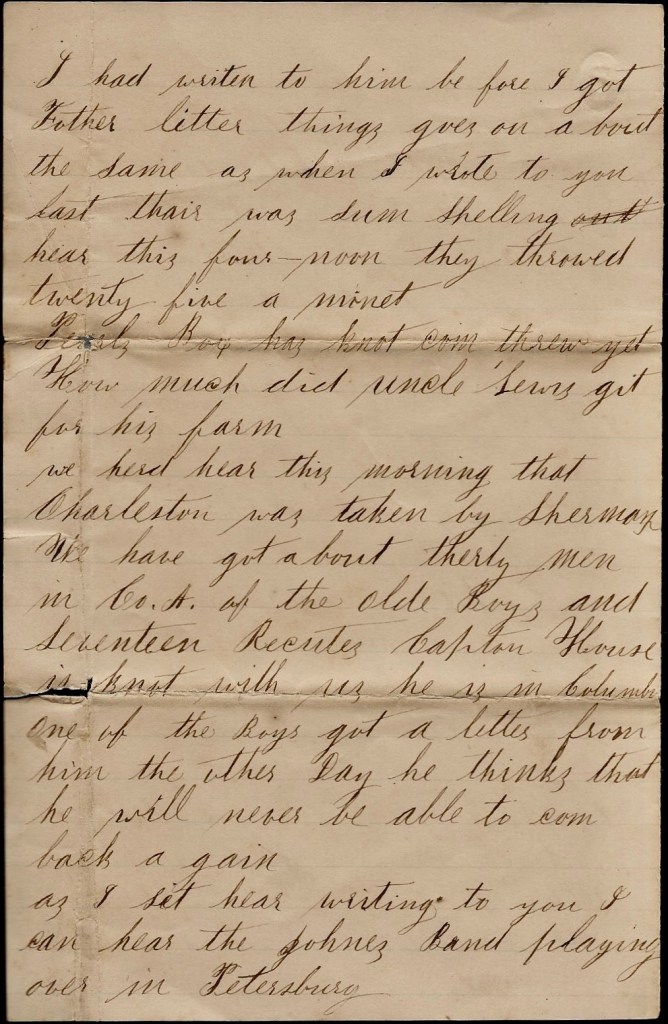 I had writen to him be fore I got
Father litter things goes on a bout
the same as when I wrote to you
last thair was sum shelling out
hear this four-noon they throwed
twenty five a minet
Pearls Box has knot com threw yet
How much did uncle Lewis git
for his farm
we herd hear this morning that
Charleston was taken by Sherman
We have got about therty men
in Co. A. of the olde Boys and
Seventeen Recutes Capton House
is knot with us he is in Columbi
One of the Boys got a letter from
him the other Day he thinks that
he will never be able to com
back a gain
as I set hear writing to you I
can hear the Johnes Band playing
over in Petersburg